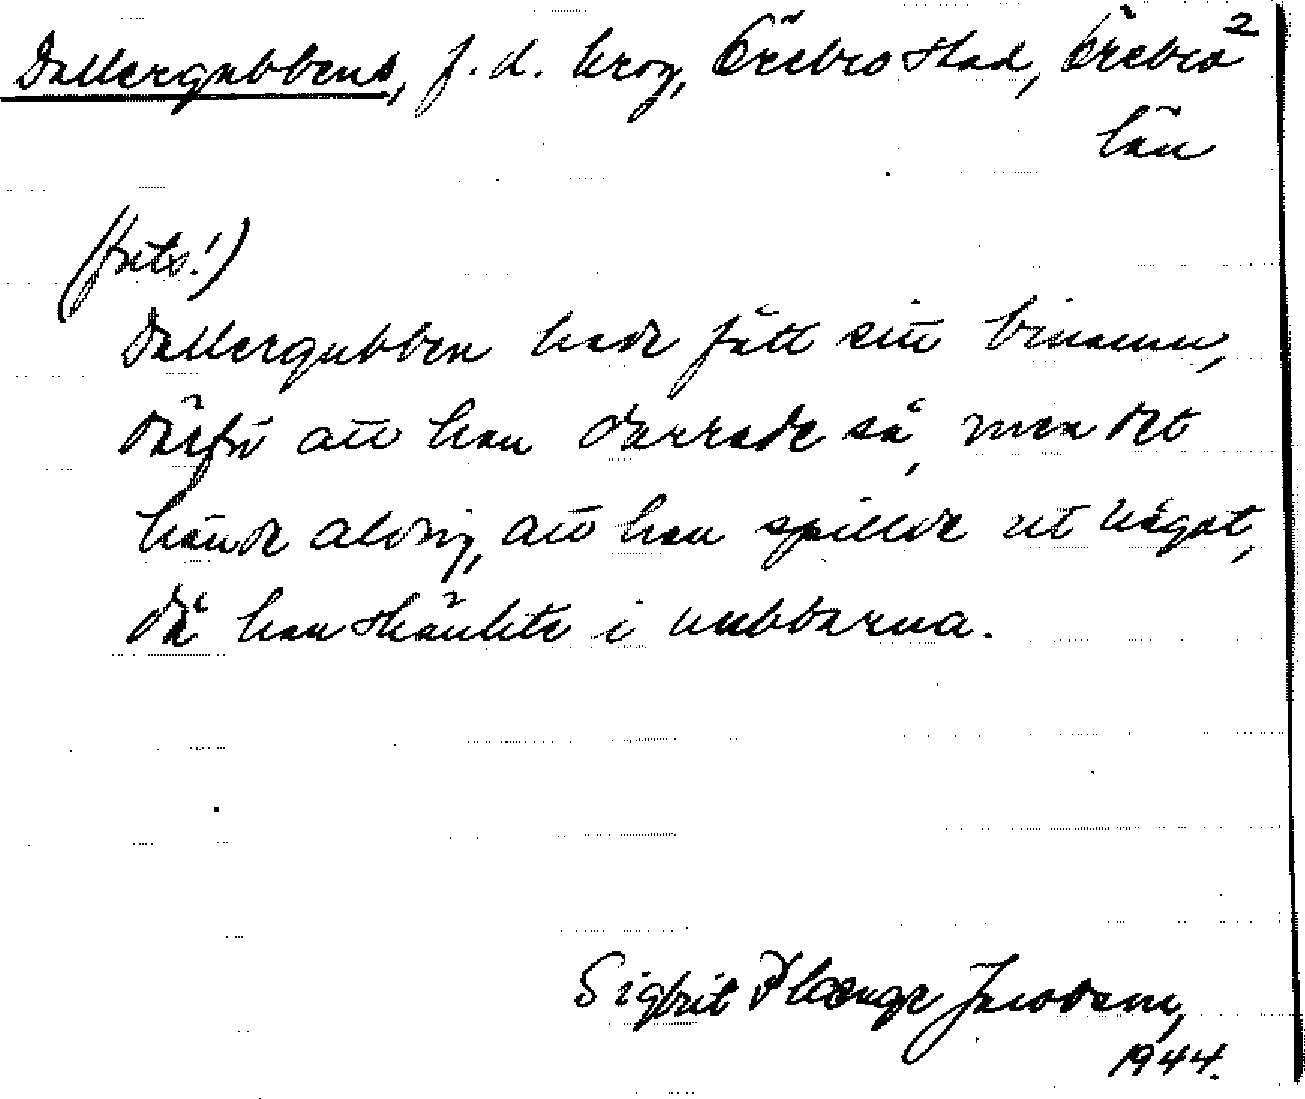 Dallergubbens, f.d. krog, Örebro stad, Örebro 2
län
(forts.!)
Dallergubben hade fått sitt binamn,
därför att han darrade så, men det
hände aldrig, att han spillde ut något,
då han skänkte i nubbarna.
Sigfrit Jacobsson,
1944.